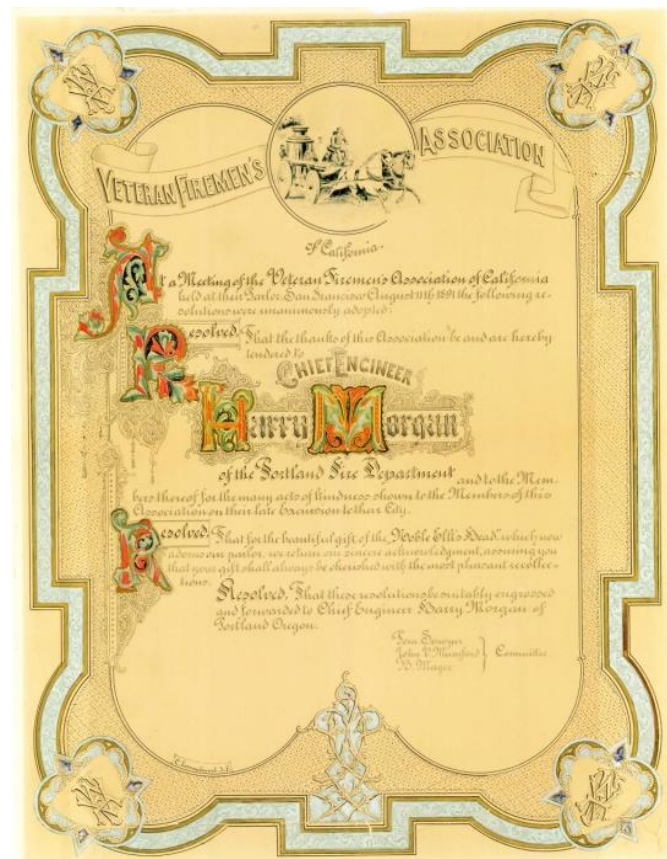 VETERAN FIREMEN'S
ASSOCIATION
of California
At a Meeting of the Veteran Firemen's Association of California
held at their Parlor San Francisco August 11th 1891 the following re-
solutions were unanimously adopted:
Resolved, That the thanks of this Association be and are hereby
tendered to
CHIEF ENGINEER
Harry Morgan
of the Portland Fire Department and to the Mem-
bers thereof for the many acts of kindness shown to the Members of this
Association on their late Excursion to their City.
Resolved, That for the beautiful gift of the "Noble Elk's Head" which now
adorns our parlor, we return our sincere acknowledgment, assuring you
that your gift shall always be cherished with the most pleasant recollec-
tions.
Resolved, That these resolutions be suitably engrossed
and forwarded to Chief Engineer Harry Morgan of
Portland Oregon.
Tom Sawyer
John V. Mumford
B. Mager
Committee